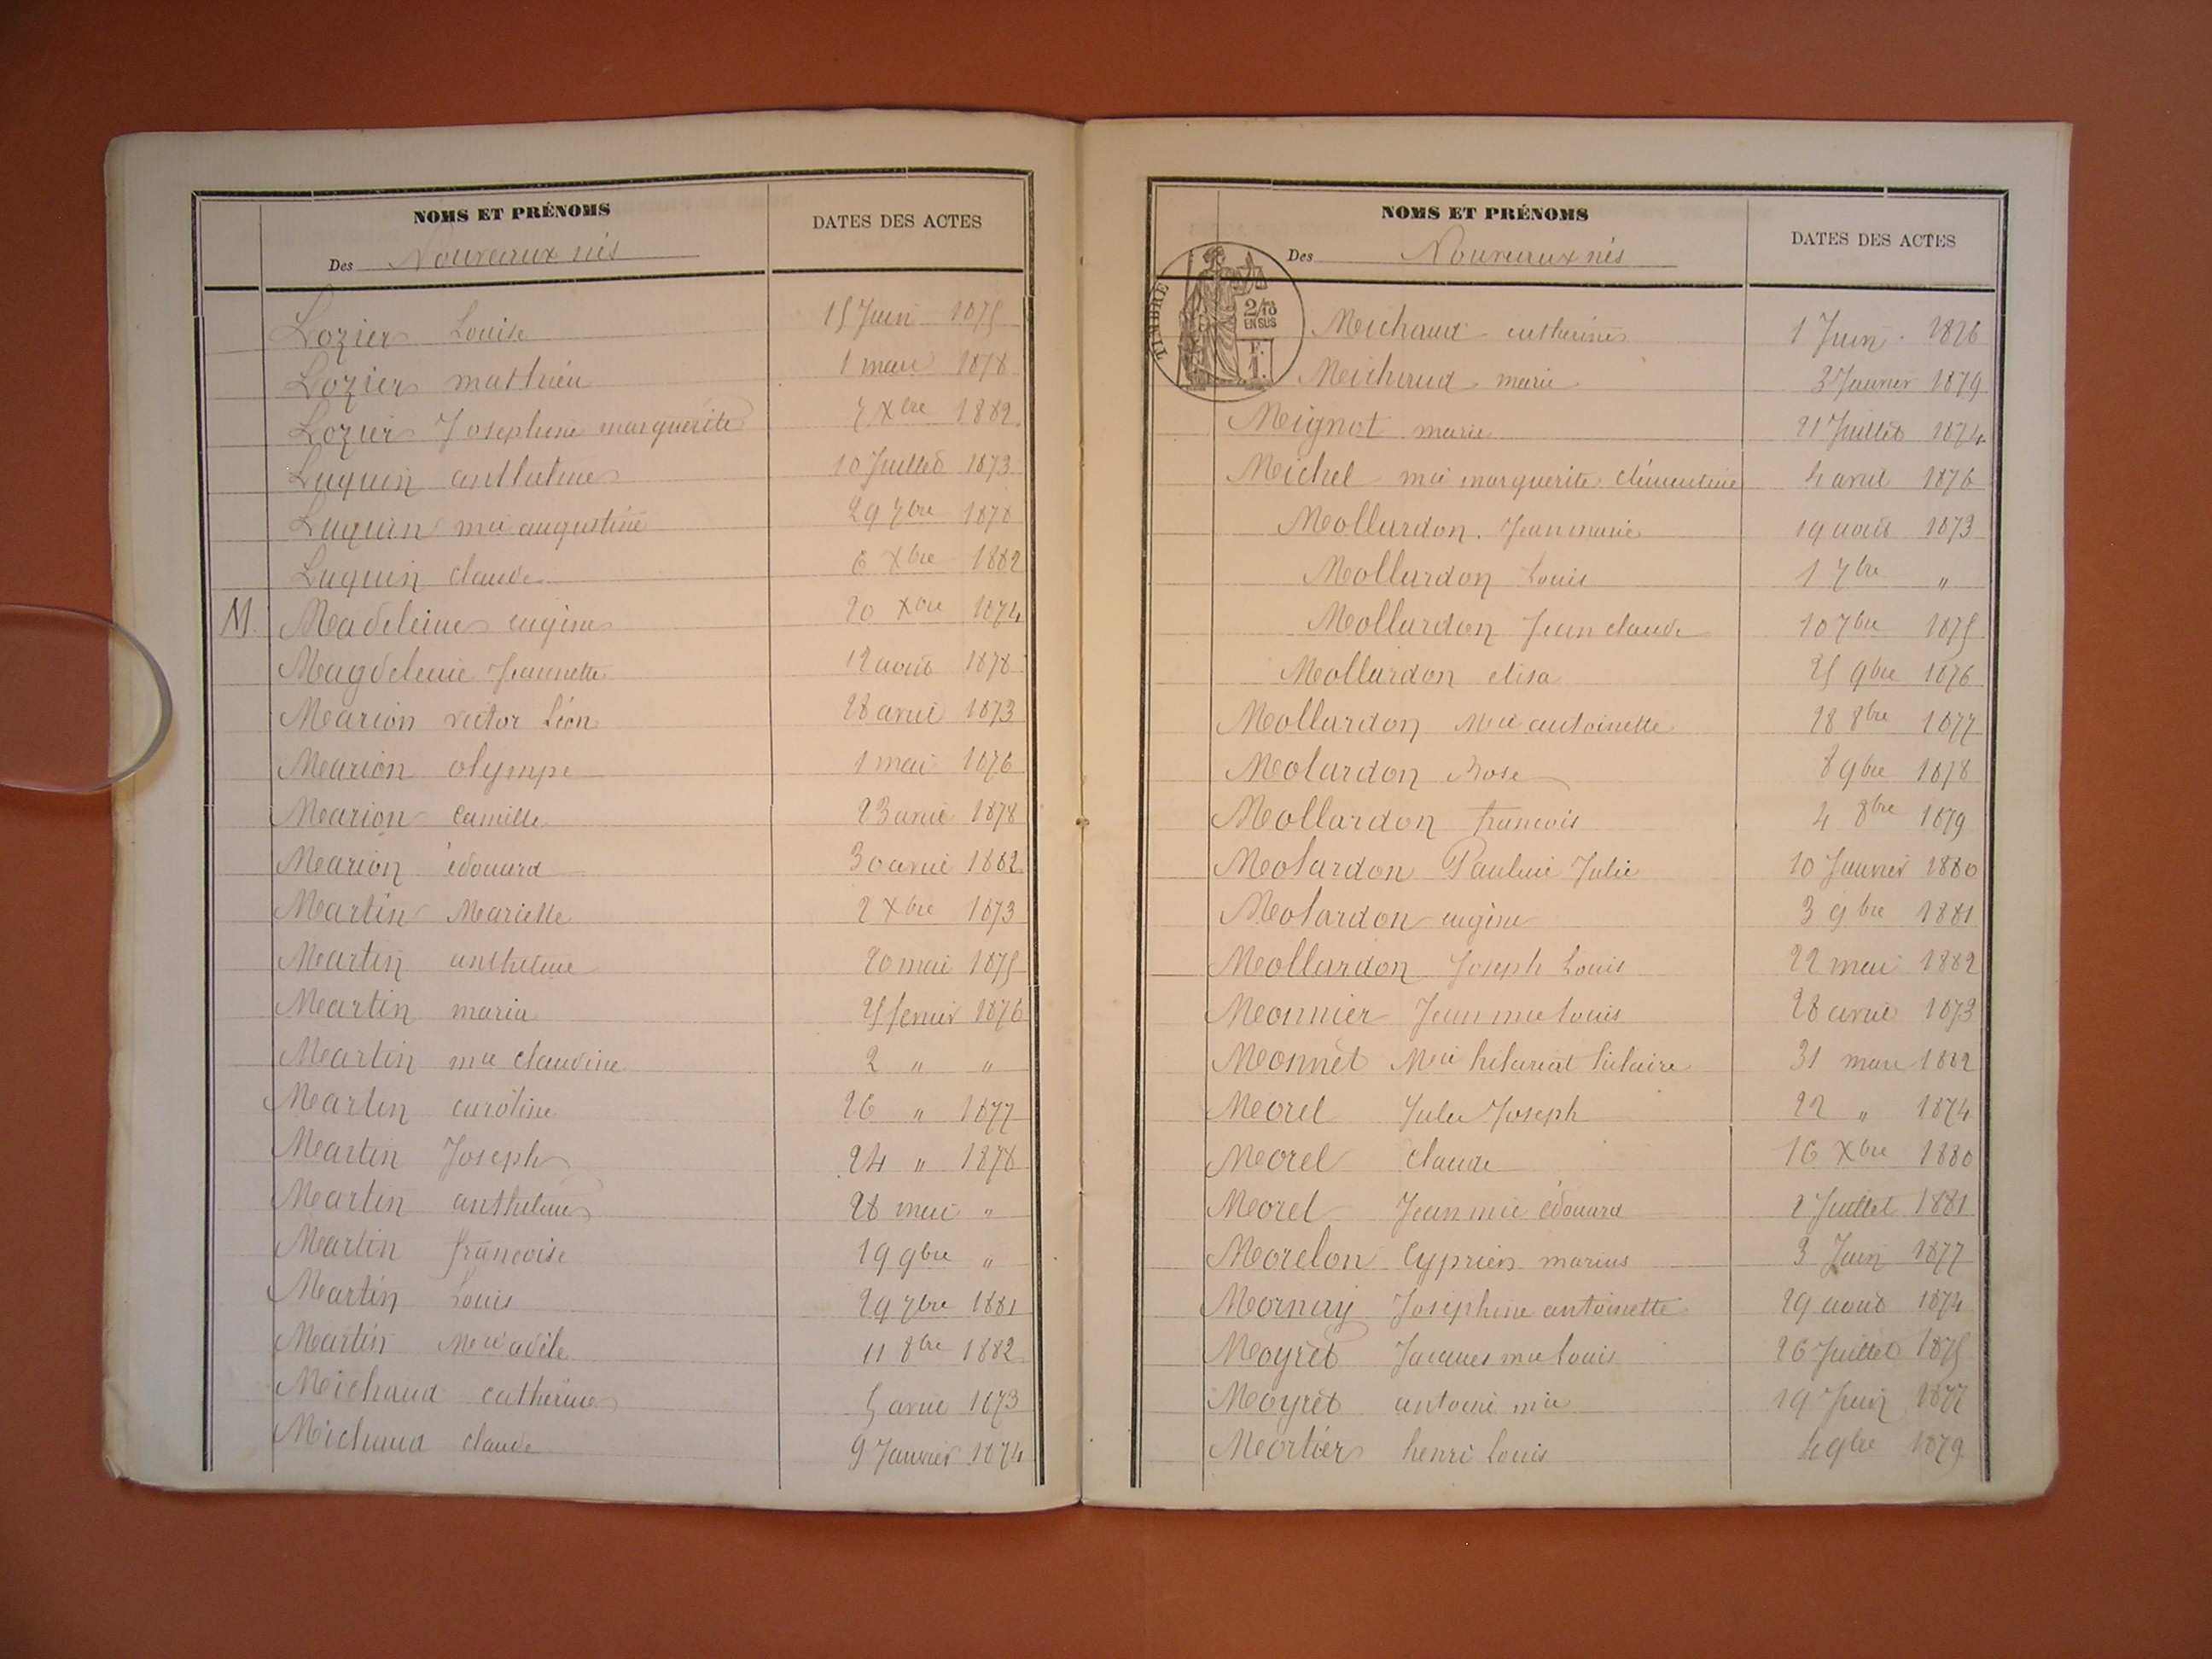 NOMS ET PRÉNOMS
DATES DES ACTES
Des Nouveaux nés
Lozier Louise 15 Juin 1875
Lozier mathieu 1 mars 1878
Lozier Josephine marguerite 7 Xbre 1882
Luquin anthelme 10 Juillet 1873
Luquin mie augustine 29 7bre 1878
Luquin claude 6 Xbre 1882
M. Madeleine eugène 20 Xbre 1874
Magdeleine Jeannette 12 août 1878
Marion victor Léon 28 avril 1873
Marion olympe 1 mai 1876
Marion Camille 23 avril 1878
Marion édouard 30 avril 1882
Martin Mariette 2 Xbre 1873
Martin anthelme 20 mai 1875
Martin maria 25 fevrier 1876
Martin mie claudine 2 " "
Martin caroline 26 " 1877
Martin Joseph 24 " 1878
Martin anthelme 28 mai "
Martin francoise 19 9bre "
Martin Louis 29 7bre 1881
Martin Mie adèle 11 8bre 1882
Michaud catherine 5 avril 1873
Michaud claude 9 Janvier 1874
NOMS ET PRÉNOMS
DATES DES ACTES
Des Nouveaux nés
TIMBRE
2/10
EN SUS
F.
1.
Michaud catherine 1 Juin 1876
Michaud marie 3 Janvier 1879
Mignot marie 21 Juillet 1874
Michel mie marguerite clémentine 4 avril 1876
Mollardon Jean marie 19 août 1873
Mollardon Louis 1 7bre "
Mollardon Jean claude 10 7bre 1875
Mollardon elisa 25 9bre 1876
Mollardon Mie antoinette 28 8bre 1877
Molardon Rose 8 9bre 1878
Mollardon francois 4 8bre 1879
Molardon Pauline Julie 10 Janvier 1880
Molardon eugène 3 9bre 1881
Mollardon Joseph Louis 22 mai 1882
Monnier Jean mie louis 28 avril 1873
Monnet Mie hilariat hilaire 31 mars 1882
Morel Jules Joseph 22 " 1874
Morel claude 16 Xbre 1880
Morel Jean mie édouard 2 Juillet 1881
Morelon Cyprien marius 3 Juin 1877
Mornay Josephine antoinette 29 août 1874
Moyret Jacques mie louis 26 Juillet 1875
Moyret antoine mie 19 Juin 1877
Mortier henri louis 4 9bre 1879